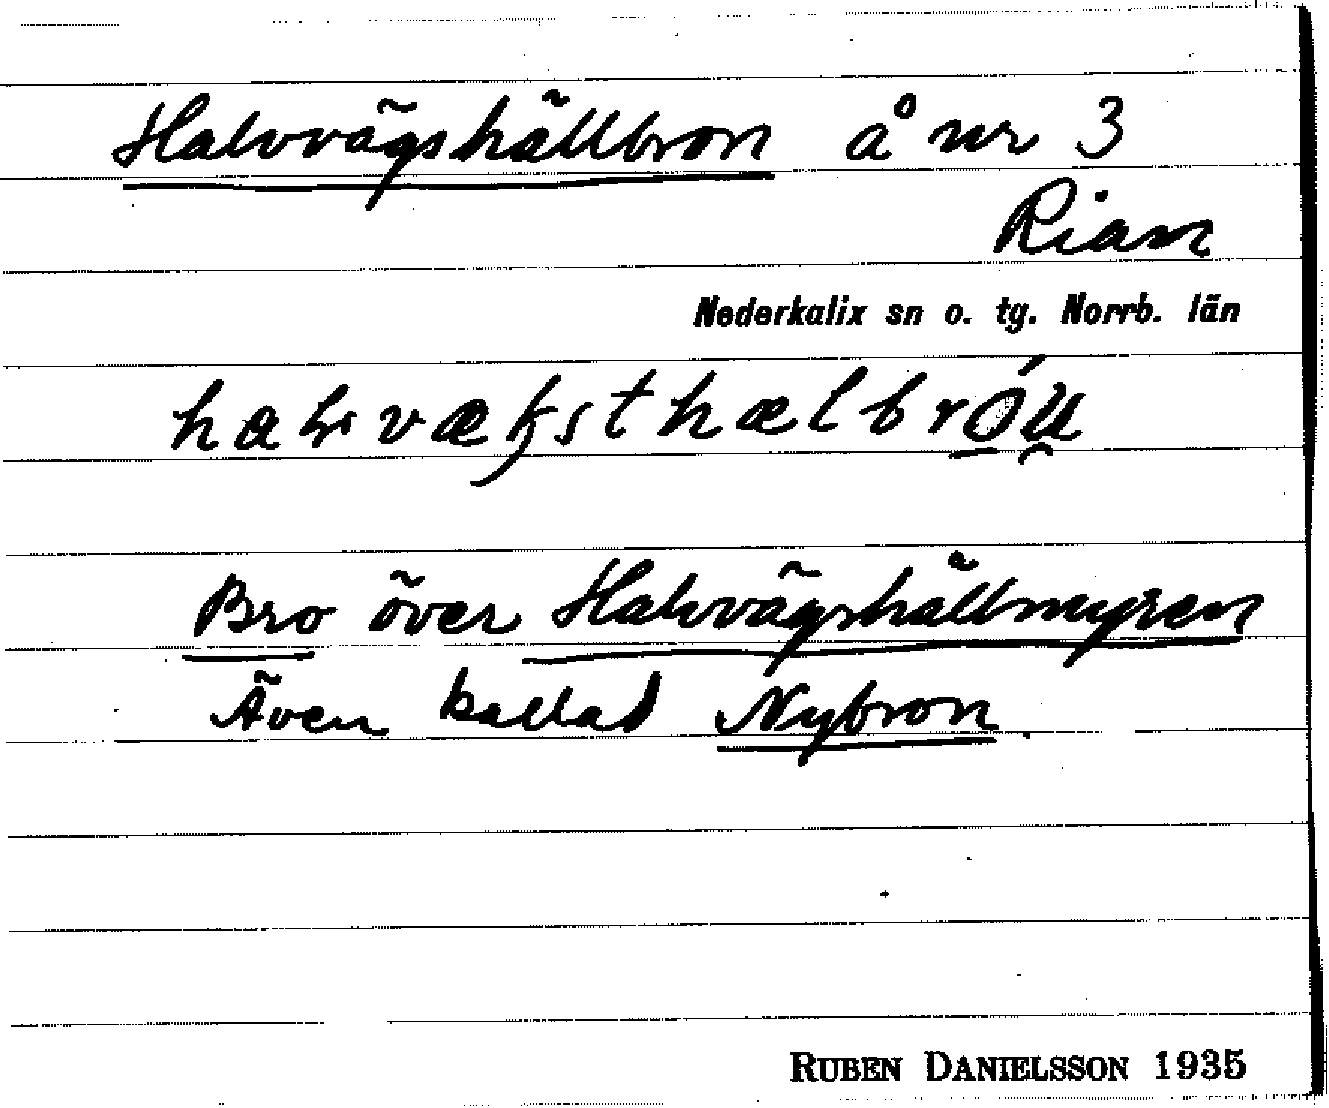 Halvvägshällbron å nr 3
Rian
Nederkalix sn o. tg. Norrb. län
Bro över Halvvägshällmyren
Även kallad Nybron
RUBEN DANIELSSON 1935